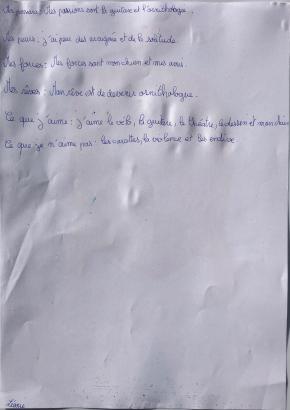 Mes passions : Mes passions sont la guitare et l'ornithologie.
Mes peurs : j'ai peur des araignée et de la solitude.
Mes forces : Mes forces sont mon chien et mes amis.
Mes rêves : Mon rêve est de devenir ornithologue.
Ce que j'aime : j'aime le vélo, la guitare, le théâtre, le dessin et mon chien
Ce que je n'aime pas : les carottes, la violence et les endive.